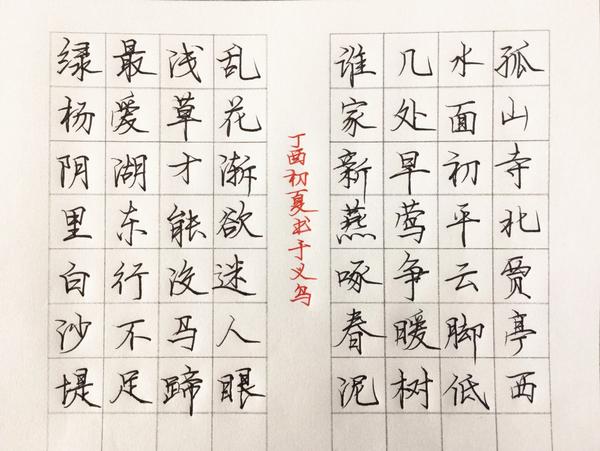 孤山寺北贾亭西
水面初平云脚低
几处早莺争暖树
谁家新燕啄春泥
丁酉初夏书于义乌
乱花渐欲迷人眼
浅草才能没马蹄
最爱湖东行不足
绿杨阴里白沙堤